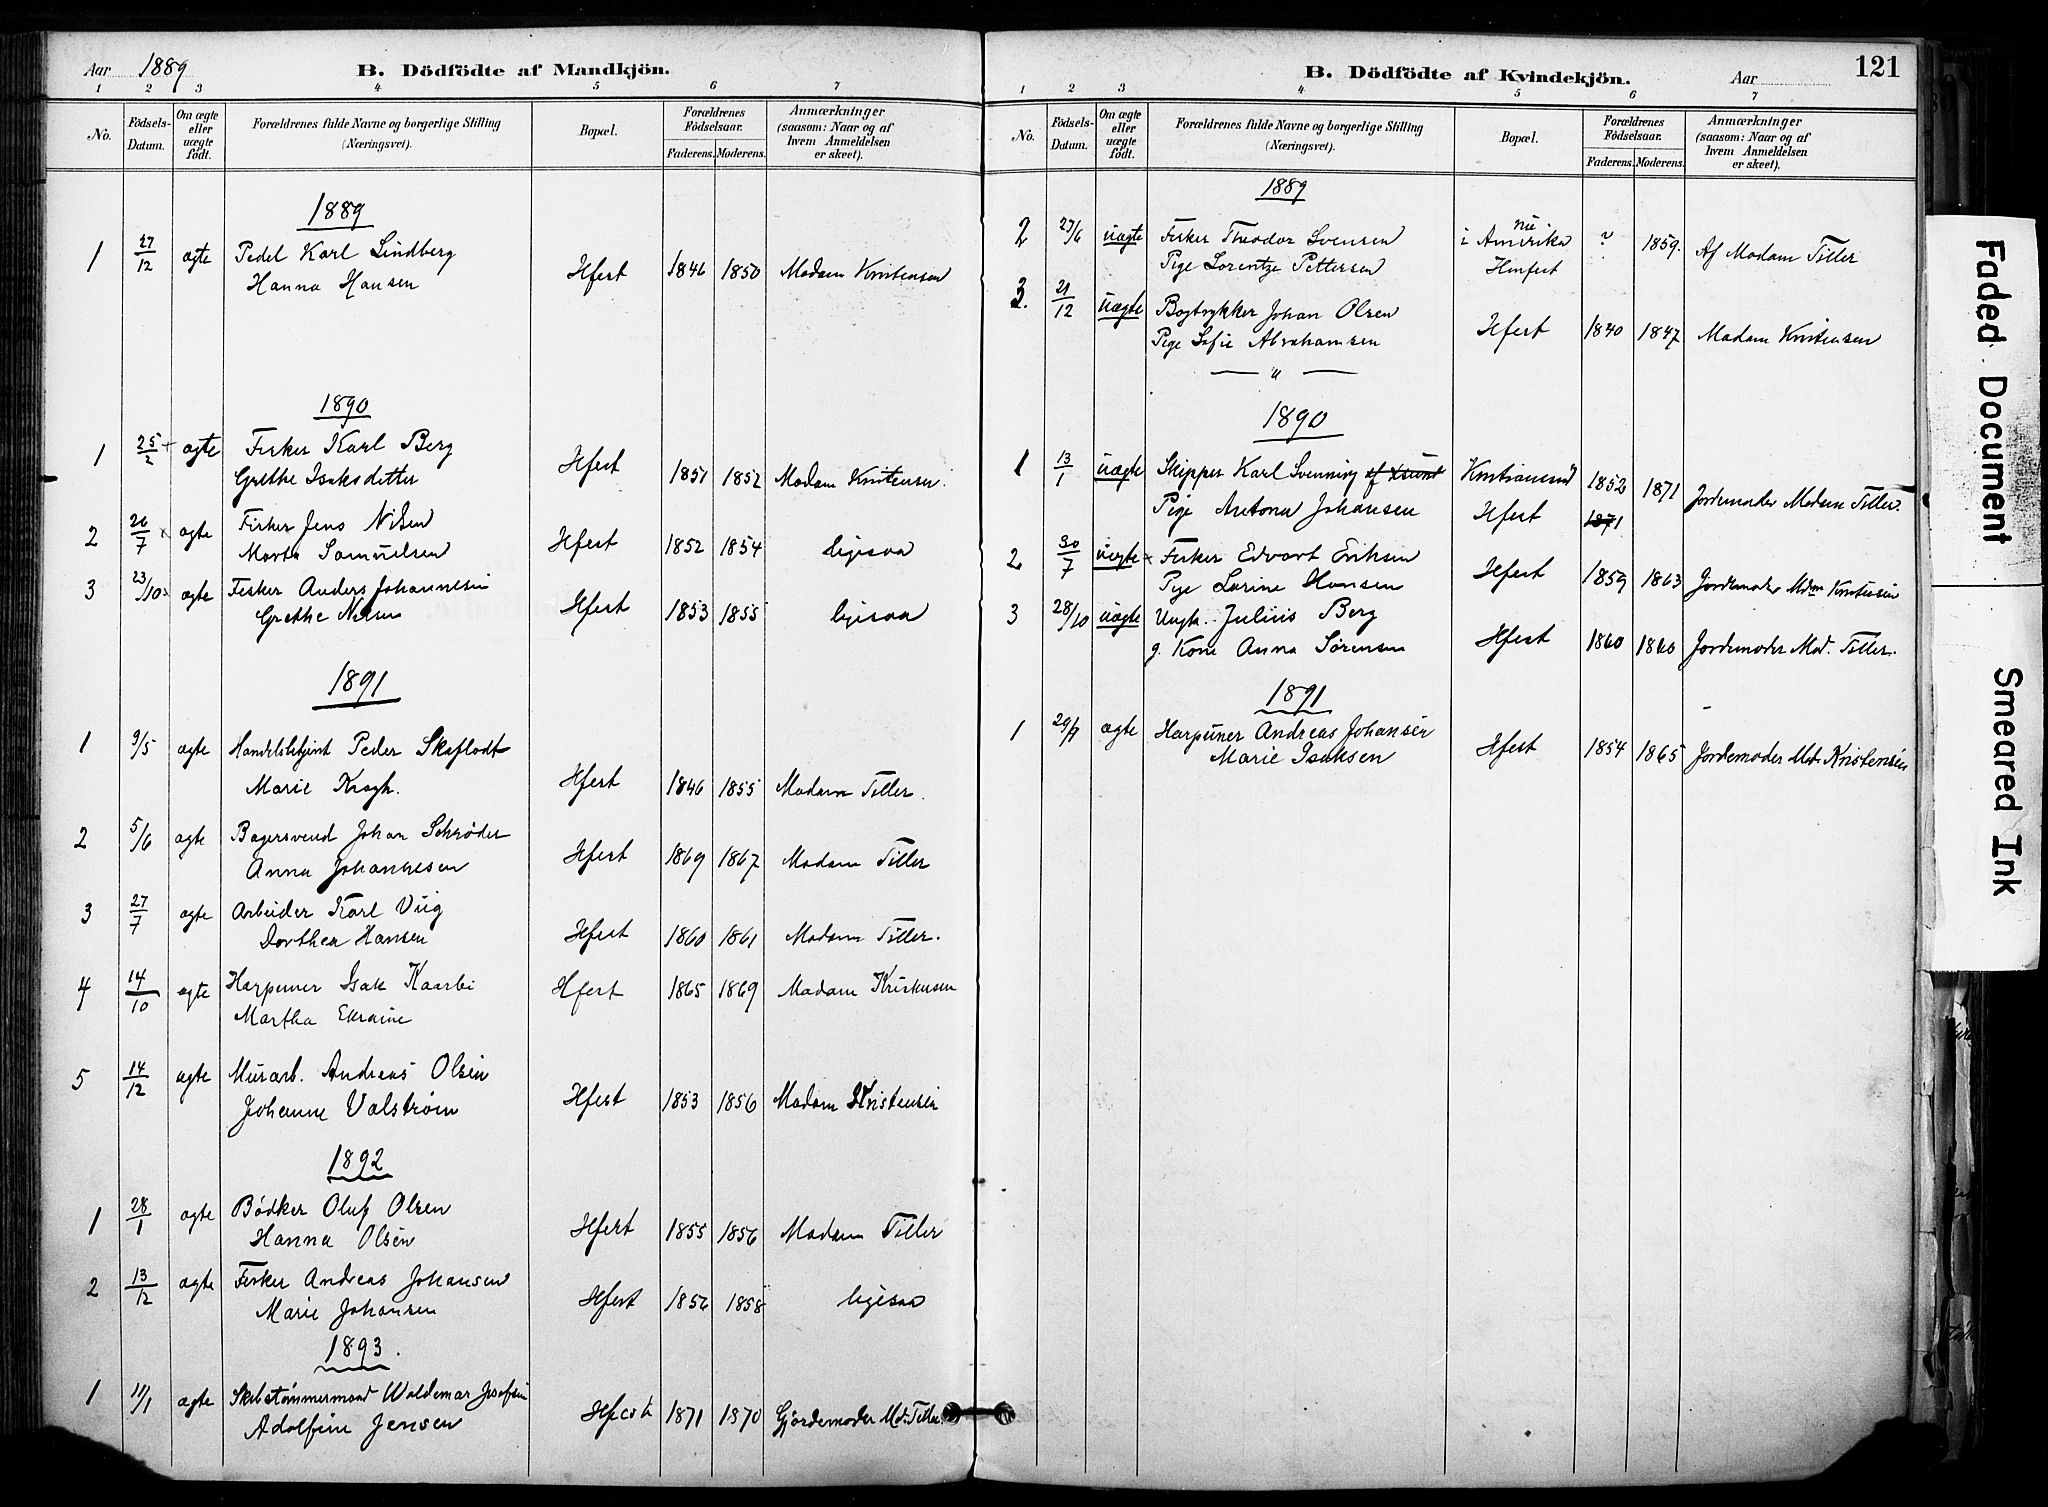 Aar 1889 B. Dödfödte af Mandkjön.
1 2 3 4 5 6 7
No. Födsels-Datum. Om ægte eller uægte födt. Forældrenes fulde Navne og borgerlige Stilling (Næringsvei). Bopæl. Forældrenes Födselsaar. Faderens. Moderens. Anmærkninger (saasom: Naar og af hvem Anmeldelsen er skeet).
1889
1 27/12 ægte Pedel Karl Lindberg
Hanna Hansen Hfest 1846 1850 Madam Kristensen
1890
1 25/2 ægte Fisker Karl Berg
Grethe Isaksdatter Hfest 1851 1852 Madam Kristensen.
2 26/7 ægte Fisker Jens Nilsen
Marta Samuelsen Hfest 1852 1854 ligesaa
3 23/10 ægte Fisker Anders Johannesen
Grethe Nilsen Hfest 1853 1855 ligesaa
1891
1 9/5 ægte Handelsbetjent Peder Skaflodt
Marie Krogh. Hfest 1846 1855 Madam Tiller.
2 5/6 ægte Bagersvend Johan Schrøder
Anna Johannesen Hfest 1869 1867 Madam Tiller
3 27/7 ægte Arbeider Karl Viig
Dorthea Hansen Hfest 1860 1861 Madam Tiller.
4 14/10 ægte Harpuner Isak Kaarbi
Martha Hfest 1865 1869 Madam Kristensen
5 14/12 ægte Murarb. Andreas Olsen
Johanne Valstrøm Hfest 1853 1856 Madam Kristensen
1892
1 28/1 ægte Bødker Oluf Olsen
Hanna Olsen Hfest 1855 1856 Madam Tiller
2 13/12 ægte Fisker Andreas Johansen
Marie Johansen Hfest 1856 1858 ligesaa
1893.
1 11/1 ægte Skibstømmermand Waldemar Josefsen
Adolfine Jensen Hfest 1871 1870 Gjordemoder Md. Tiller.
B. Dödfödte af Kvindekjön. Aar 121
1 2 3 4 5 6 7
No. Födsels-Datum. Om ægte eller uægte födt. Forældrenes fulde Navne og borgerlige Stilling (Næringsvei). Bopæl. Forældrenes Födselsaar. Faderens. Moderens. Anmærkninger (saasom: Naar og af hvem Anmeldelsen er skeet).
1889
2 27/6 uægte Fisker Theodor Svensen nu i Amerika ? 1859. Af Madam Tiller
Pige Lorentze Pettersen Hmfest
3. 21/12 uægte Bogtrykker Johan Olsen
Pige Sofie Abrahamsen Hfest 1840 1847 Madam Kristensen
— " —
1890
1 13/1 uægte Skipper Karl Svenning af Xsund Kristiansund 1852 1871 Jordemoder Madam Tiller.
Pige Antona Johansen Hfest 1871
2 30/7 uægte Fisker Edvart Eriksen
Pige Larine Hansen Hfest 1859 1863 Jordemoder Mdm Kristensen
3 28/10 uægte Ungk. Julius Berg
g. Kone Anna Sørensen Hfest 1860 1860 Jordemoder Mad. Tiller.
1891
1 29/7 ægte Harpuner Andreas Johansen
Marie Isaksen Hfest 1854 1865 Jordemoder Md. Kristensen
Faded Document
Smeared Ink